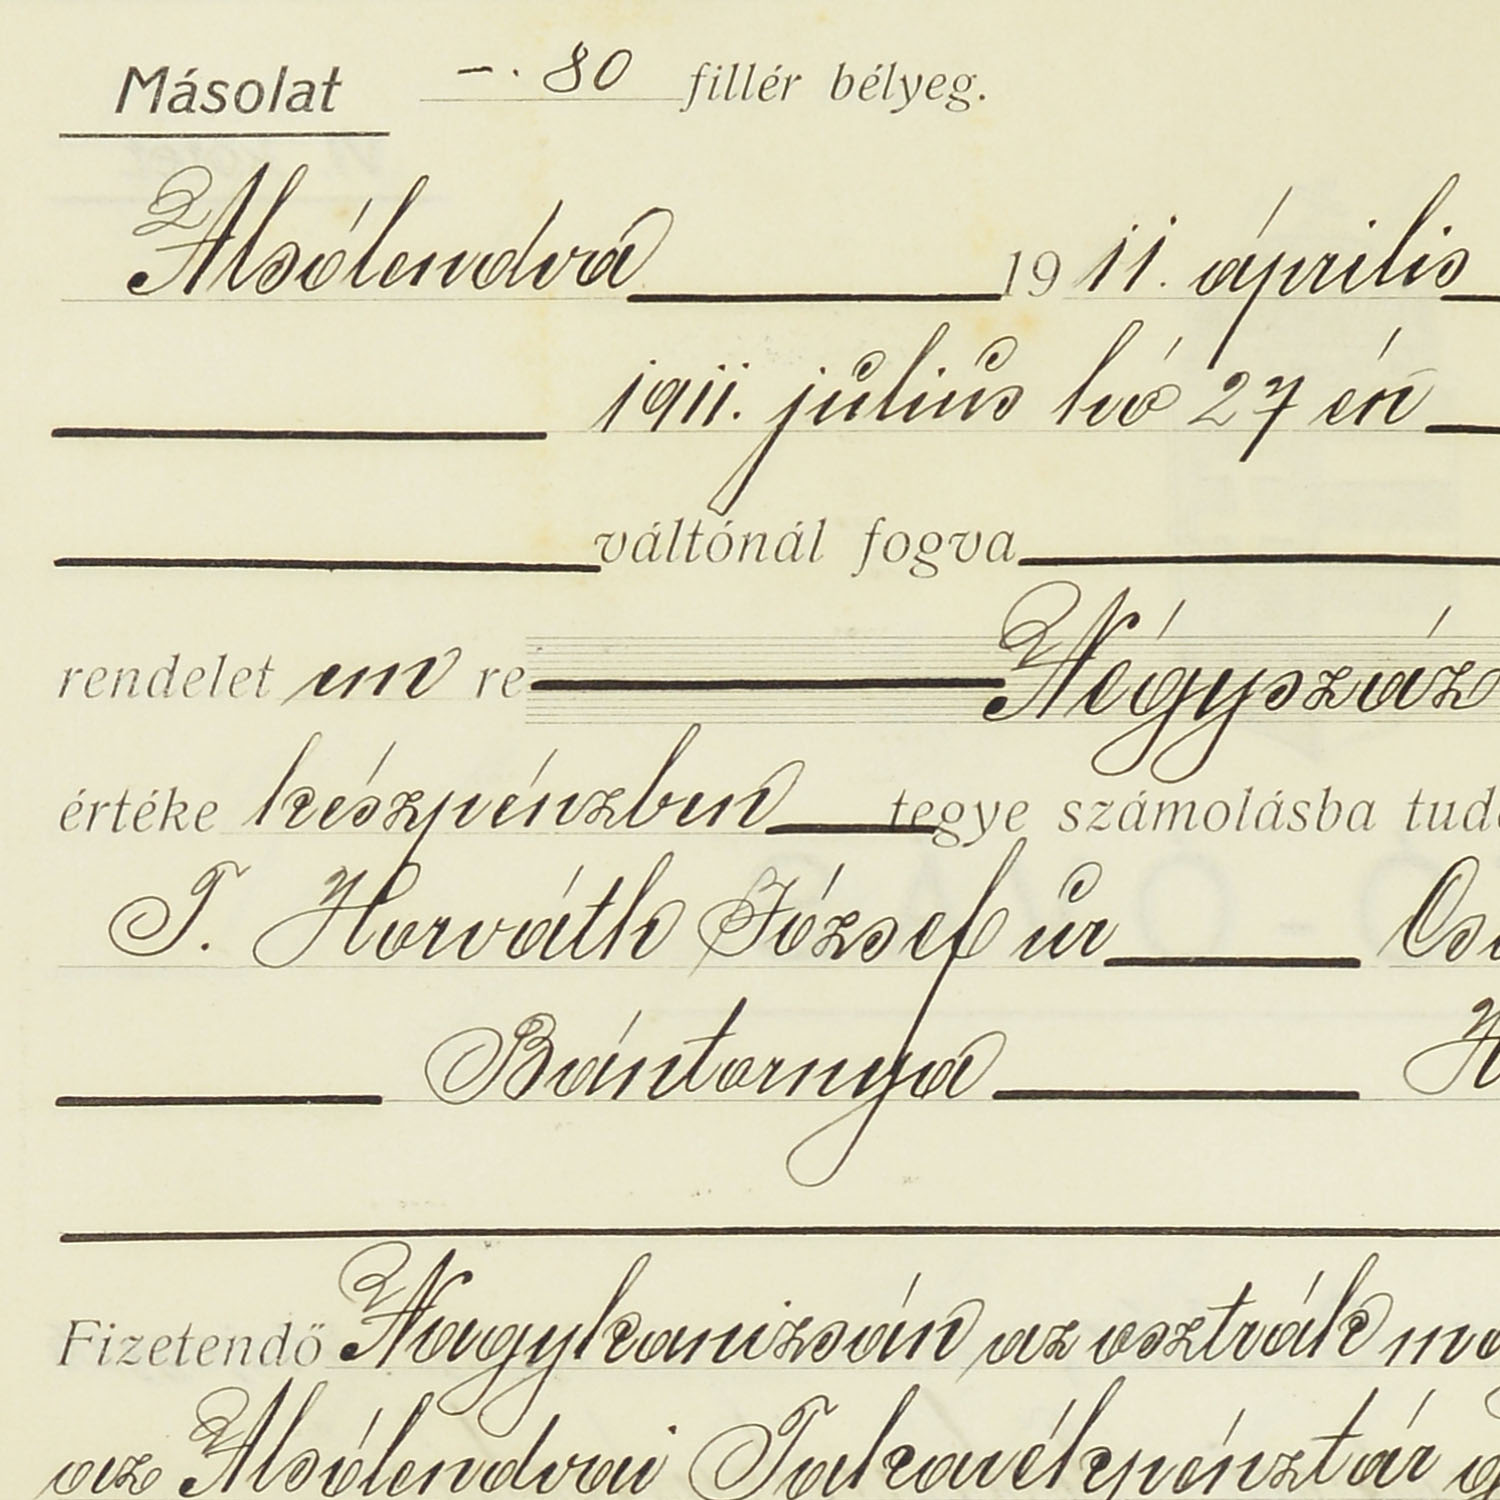 Másolat —. 80 fillér bélyeg.
Alsólendva 1911. április
1911. július hó 27 én
váltónál fogva
rendelet em re Négyszáz
értéke készpénzben tegye számolásba
T. Horváth József úr
Bántornya
Fizetendő Nagykanizsán az osztrák
az Alsólendvai Takarékpénztár